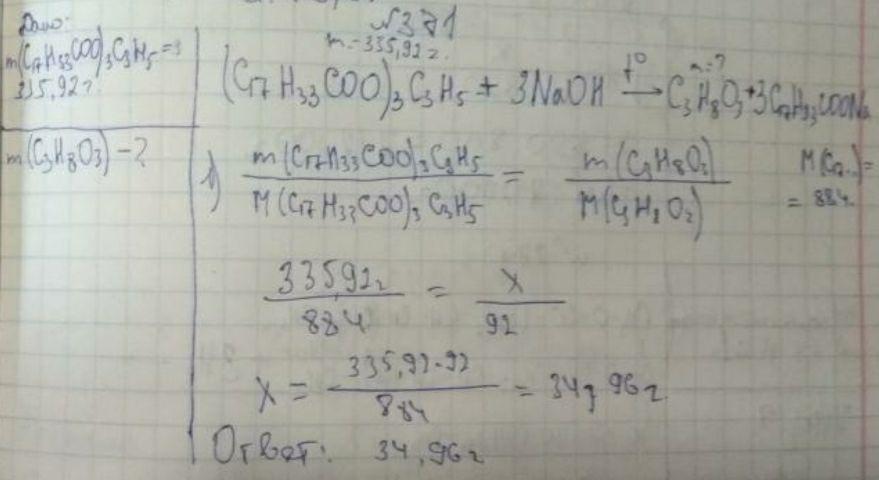 №371
Дано:
m(C17H33COO)3C3H5 =
335,92 г.
m(C3H8O3) - ?
m = 335,92 г. m = ?
(C17H33COO)3C3H5 + 3NaOH t° → C3H8O3 + 3C17H33COONa
1) m(C17H33COO)3C3H5 / M(C17H33COO)3C3H5 = m(C3H8O3) / M(C3H8O3)
M(C17..) =
= 884
335,92 г / 884 = x / 92
x = 335,92·92 / 884 = 34,96 г
Ответ: 34,96 г